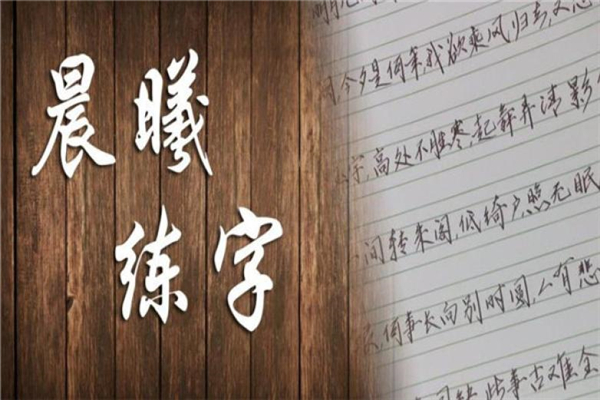 晨曦
练字
今夕是何年,我欲乘风归去,又恐
宇,高处不胜寒,起舞弄清影
间转朱阁,低绮户,照无眠
何事长向别时圆,人有悲
此事古难全